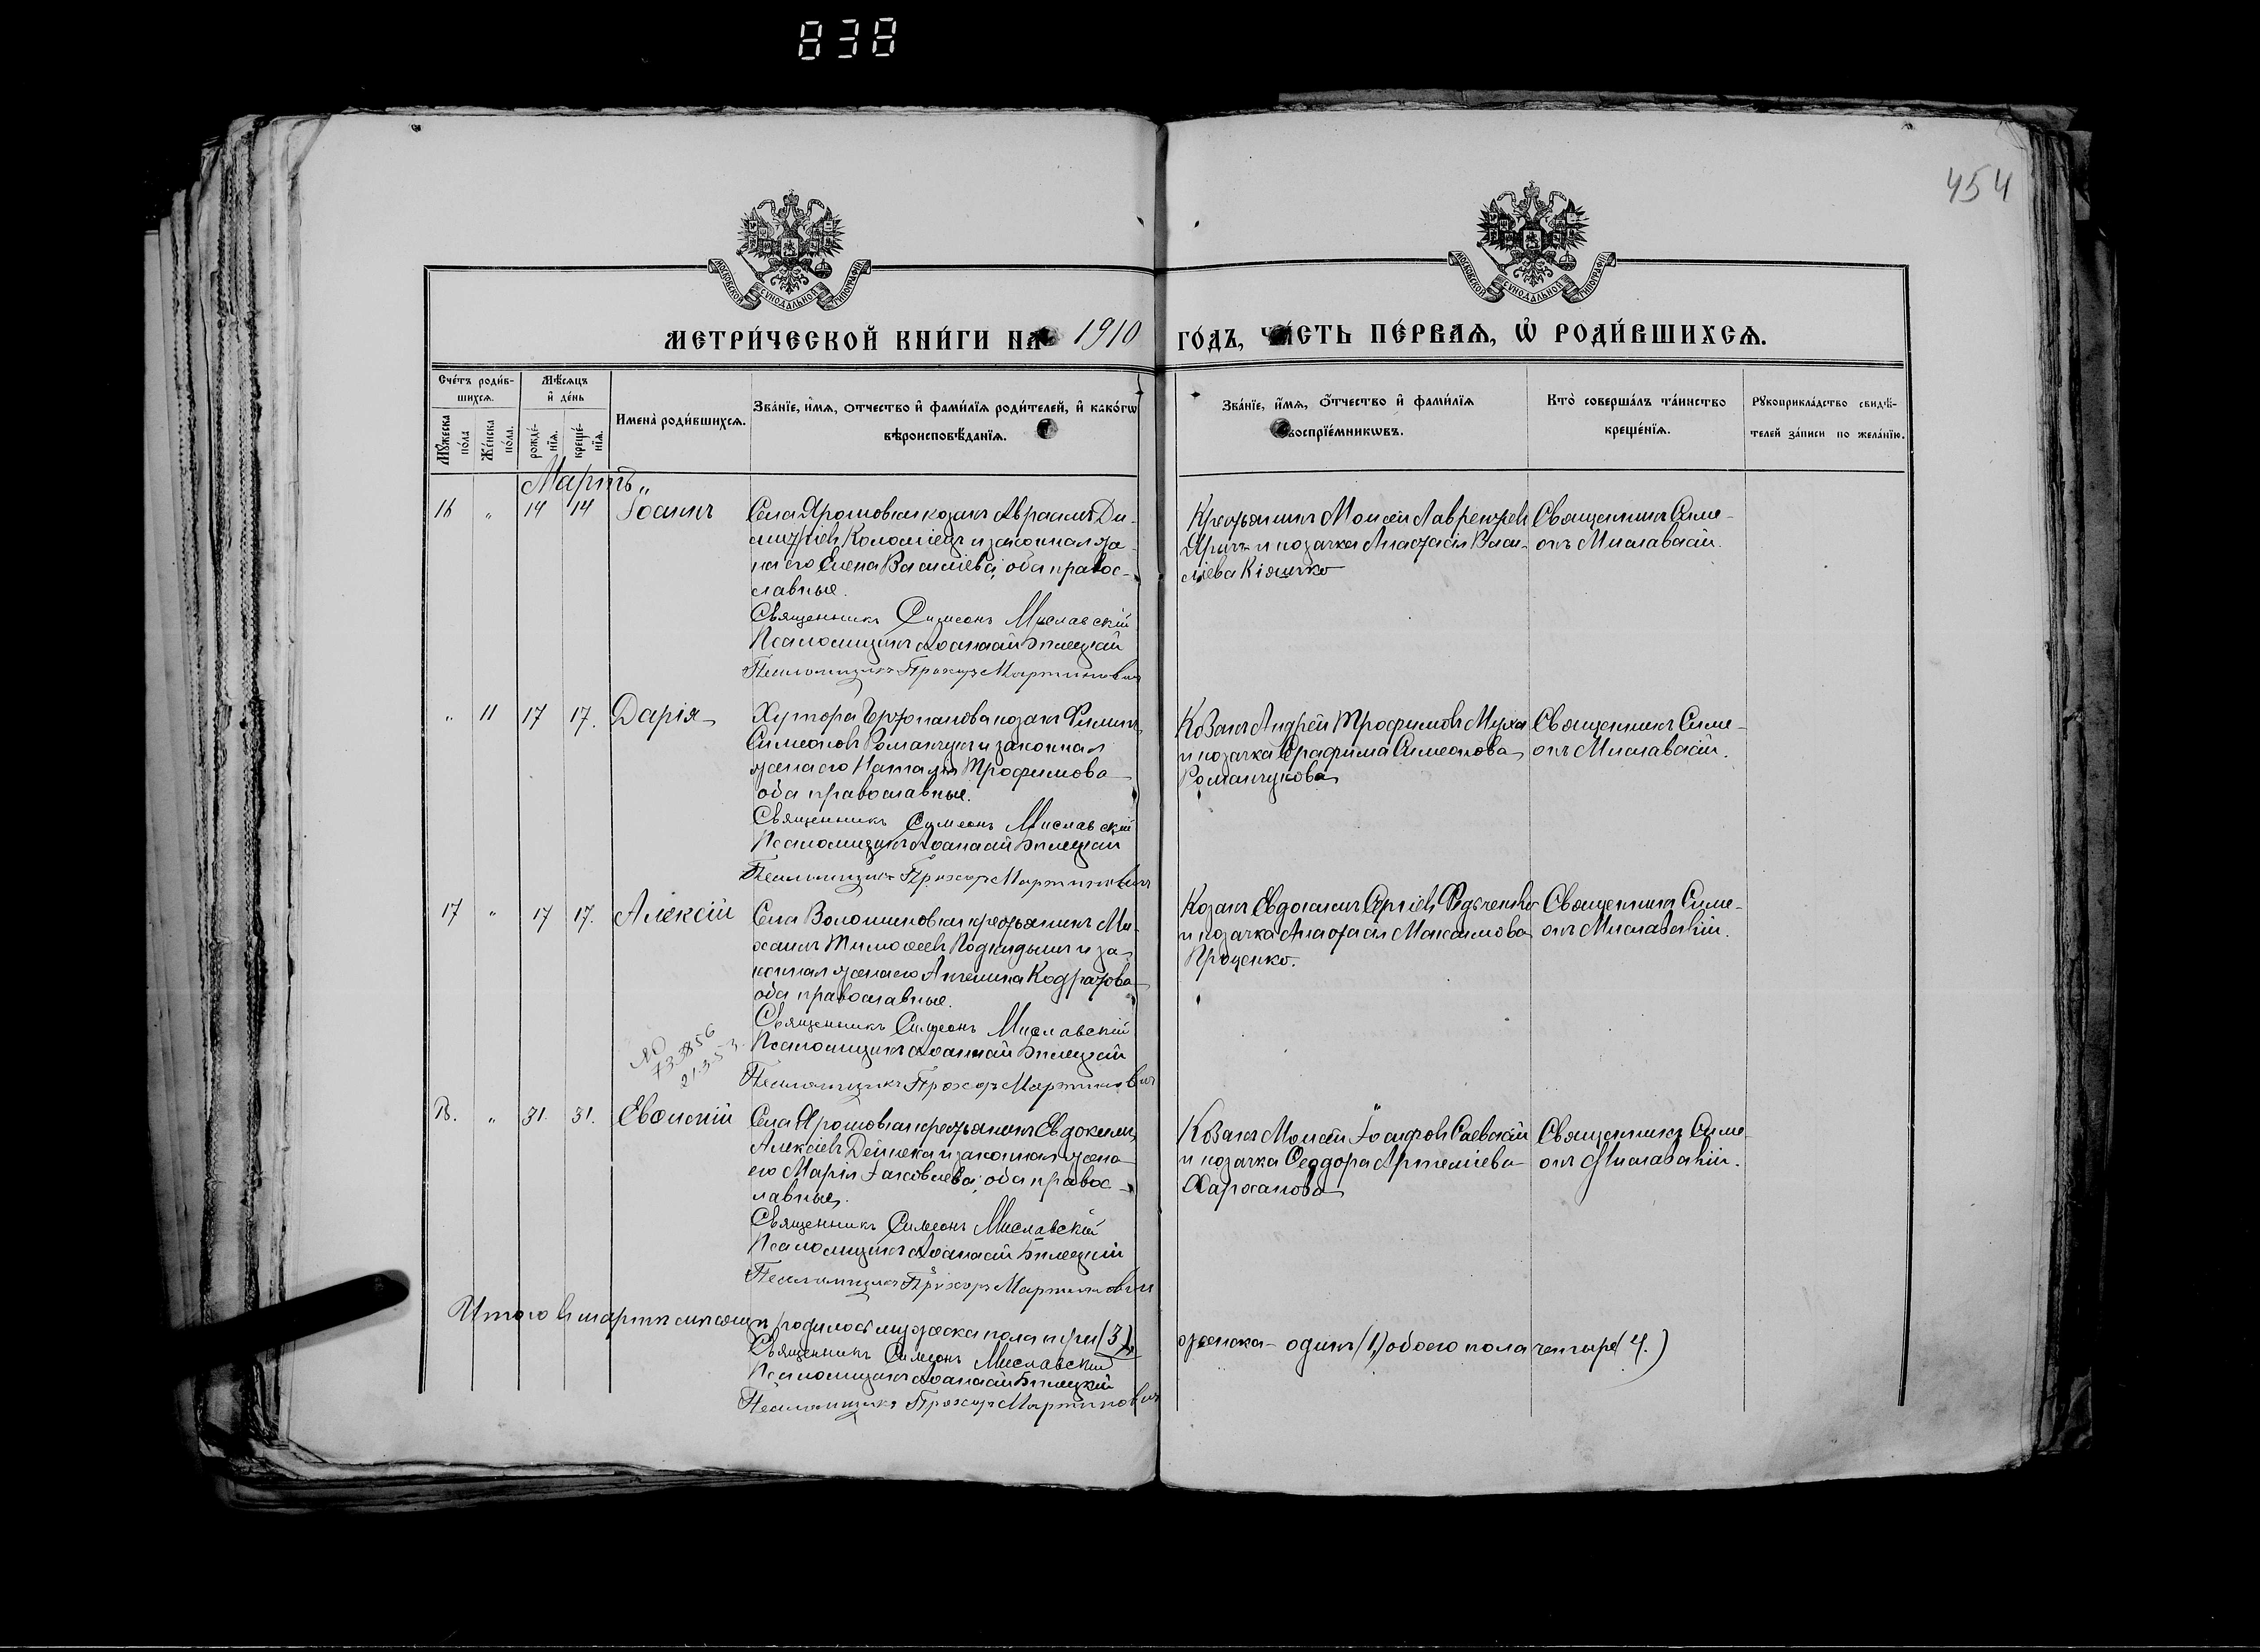 838
454
МОСКОВСКОЙ СѴНОДАЛЬНОЙ ТИПОГРАФІИ
МОСКОВСКОЙ СѴНОДАЛЬНОЙ ТИПОГРАФІИ
МЕТРИ́ЧЕСКОЙ КНИ́ГИ НА 1910 ГО́ДЪ, ЧА́СТЬ ПЕ́РВАѦ, Ѡ҆ РОДИ́ВШИХСѦ.
Сче́тъ роди́в-
шихсѧ.
Мꙋ́жеска по́ла
Же́нска по́ла.
Мѣ́сѧцъ и҆ де́нь
рожде́-нїѧ.
креще́-нїѧ.
Имена̀ роди́вшихсѧ.
Зва́нїе, и҆́мѧ, о́тчество и҆ фами́лїѧ роди́телей, и҆ како́гѡ
вѣроисповѣ́данїѧ.
Зва́нїе, и҆́мѧ, о́тчество и҆ фами́лїѧ
воспрїе́мникѡвъ.
Кто̀ соверша́лъ та́инство
креще́нїѧ.
Рꙋкоприкла́дство свидѣ́-
телей за́писи по жела́нїю.
Мартъ
16 " 14 14 Іоаннъ
Села Ярошовки козакъ Авраамъ Ди-
митріевъ Коломіецъ и законная же-
на его Елена Василіева, оба правос-
славные.
Священникъ Симеонъ Миславскій
Псаломщикъ Аѳанасій Билецкій
Псаломщикъ Прохоръ Мартиновичъ
Крестьянинъ Моисей Лаврентіевъ
и козачка Анастасія Васи-
ліева Кіяшко
Священникъ Симе-
онъ Миславскій.
" 11 17 17. Дарія
Хутора козакъ Филиппъ
Симеоновъ Романчукъ и законная
жена его Наталія Трофимова
оба православные.
Священникъ Симеонъ Миславскій
Псаломщикъ Аѳанасій Билецкій
Псаломщикъ Прохоръ Мартиновичъ
Козакъ Андрей Трофимовъ Муха
и козачка Серафима Симеонова
Романчукова
Священникъ Симе-
онъ Миславскій.
17 " 17 17. Алексій
Села Волошиновки крестьянинъ Ми-
хаилъ Тимоѳеевъ Подкидышъ и за-
конная жена его Ангелина Кодратова
оба православные.
Священникъ Симеонъ Миславскій
Псаломщикъ Аѳанасій Билецкій
Псаломщикъ Прохоръ Мартиновичъ
Козакъ Евдокимъ Сергіевъ Федченко
и козачка Анастасія Максимова
Проценко.
Священникъ Симе-
онъ Миславскій.
18. " 31. 31. Евѳимій
Села Ярошовки крестьянинъ Евдокимъ
Алексіевъ Дейнека и законная жена
его Марія Іаковлева, оба правос-
лавные.
Священникъ Симеонъ Миславскій
Псаломщикъ Аѳанасій Билецкій
Псаломщикъ Прохоръ Мартиновичъ
Козакъ Моисей Іосифовъ Саевскій
и козачка Ѳеодора Артеміева
Харханова
Священникъ Симе-
онъ Миславскій.
Итого въ мартѣ мѣсяцѣ родилось мужеска пола три (3)
женска - одинъ (1) обоего пола четыре (4.)
Священникъ Симеонъ Миславскій
Псаломщикъ Аѳанасій Билецкій
Псаломщикъ Прохоръ Мартиновичъ